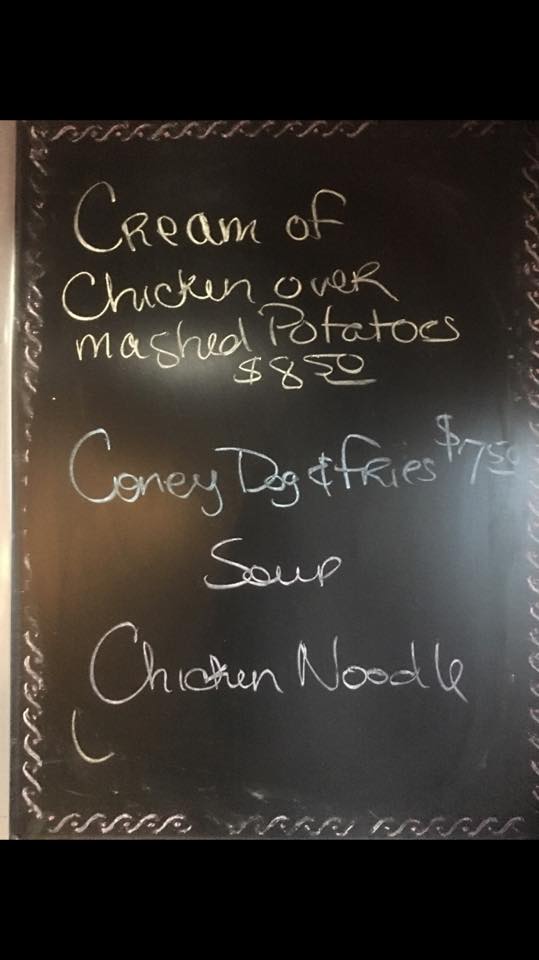 Cream of
Chicken over
mashed Potatoes
$8.50
Coney Dog & Fries $7.50
Soup
Chicken Noodle